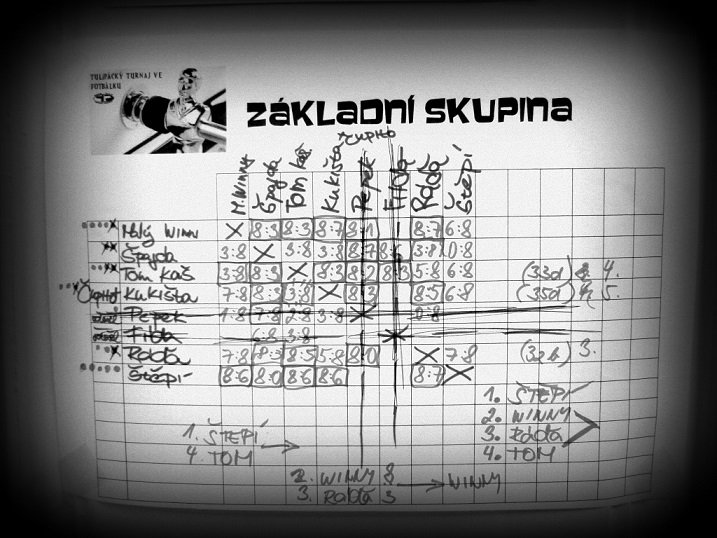 TULIPÁCKÝ TURNAJ VE
FOTBÁLKU
ZÁKLADNÍ SKUPINA
ČUPITO
M. WINNY Špajda Tom Kukišta Pepek Filda Ráďa Štěpí
Malý WINN X 8:3 8:3 8:7 8:7 6:8
Špajda 3:8 X 3:8 3:8 8:7 3:8 0:8
Tom Kaš 3:8 8:3 X 8:3 8:2 8:3 5:8 6:8 4.
Kukišta 7:8 8:3 3:8 X 8:3 8:5 6:8 5.
Pepek 1:8 7:8 2:8 3:8 X 0:8
Filda 6:8 3:8
Ráďa 7:8 8:3 8:5 5:8 8:0 X 7:8 3.
Štěpí 8:6 8:0 8:6 8:6 8:7 X
1. ŠTEPÍ
2. WINNY
3. RáĎA
4. TOM
1. ŠTEPÍ
4. TOM
2. WINNY 8
3. RáĎA 3
WINNY